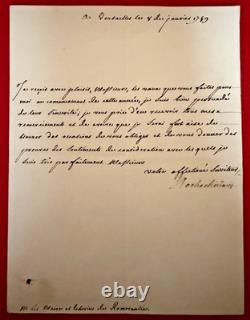 A Versailles le 8 de janvier 1789
Je reçois avec plaisir, Messieurs, les vœux que vous faites pour
moi au commencement de cette année, je suis bien persuadé
de leur sincérité; je vous prie d'en recevoir tous mes
remerciements et de croire que je serai fort aise de
trouver des occasions de vous obliger et de vous donner des
preuves des sentiments de considération avec lesquels je
suis très parfaitement Messieurs
votre affectionné Serviteur
M. les Maires et Echevins de